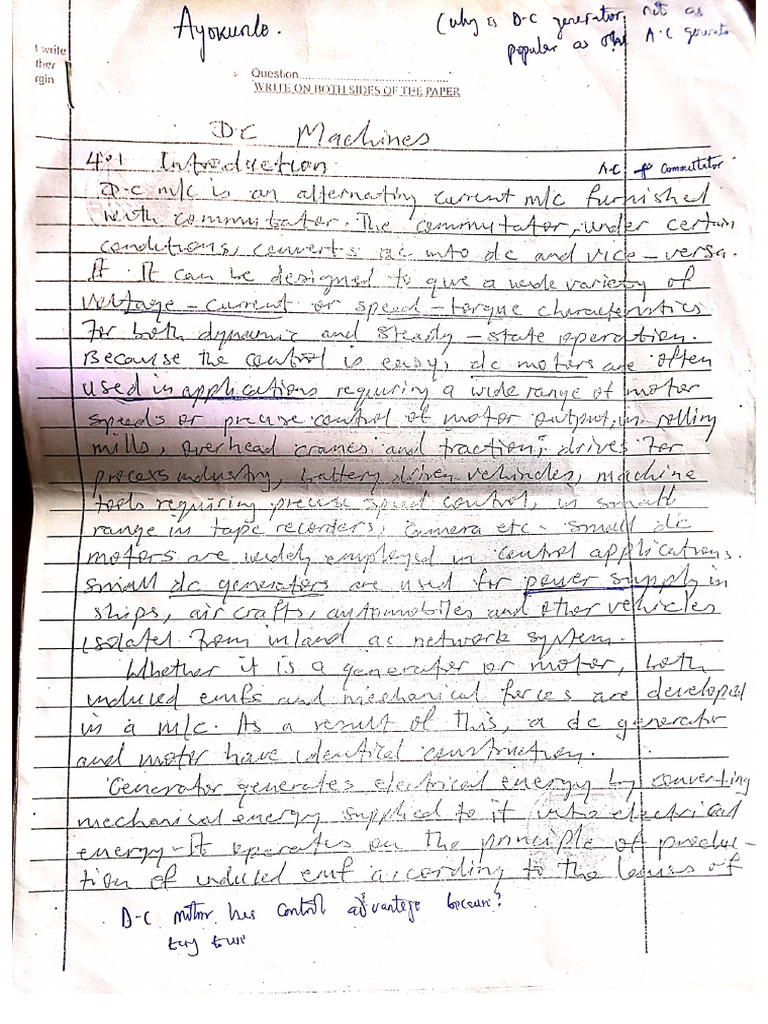 Ayokunle.
(why is D-C generator not as
popular as other A.C generator
t write
ther
rgin
Question
WRITE ON BOTH SIDES OF THE PAPER
DC Machines
4.1 Introduction
A.C + Commutator
D-C m/c is an alternating current m/c furnished
with commutator. The commutator, under certain
conditions, converts ac into dc and vice-versa.
It. It can be designed to give a wide variety of
voltage-current or speed-torque characteristics
for both dynamic and steady-state operation.
Because the control is easy, dc motors are often
used in applications requiring a wide range of motor
speeds or precise control of motor output, in rolling
mills, overhead cranes and traction, drives for
process industry, battery driven vehicles, machine
tools requiring precise speed control, in small
range in tape recorders, camera etc. Small dc
motors are widely employed in control applications.
Small dc generators are used for power supply in
ships, air crafts, automobiles and other vehicles
isolated from inland ac network system.
Whether it is a generator or motor, both
induced emfs and mechanical forces are developed
in a m/c. As a result of this, a dc generator
and motor have identical construction.
Generator generates electrical energy by converting
mechanical energy supplied to it into electrical
energy. It operates on the principle of produc-
tion of induced emf according to the laws of
D-C motor has control advantage because?